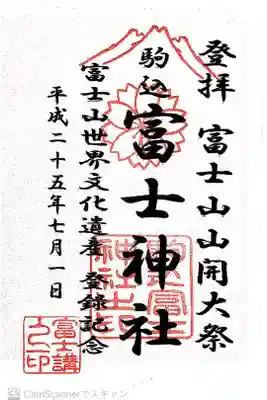 登拝 富士山山開大祭
駒込 富士神社
富士山世界文化遺産 登録記念
平成二十五年七月一日
富士講
之印
CS CamScannerでスキャン